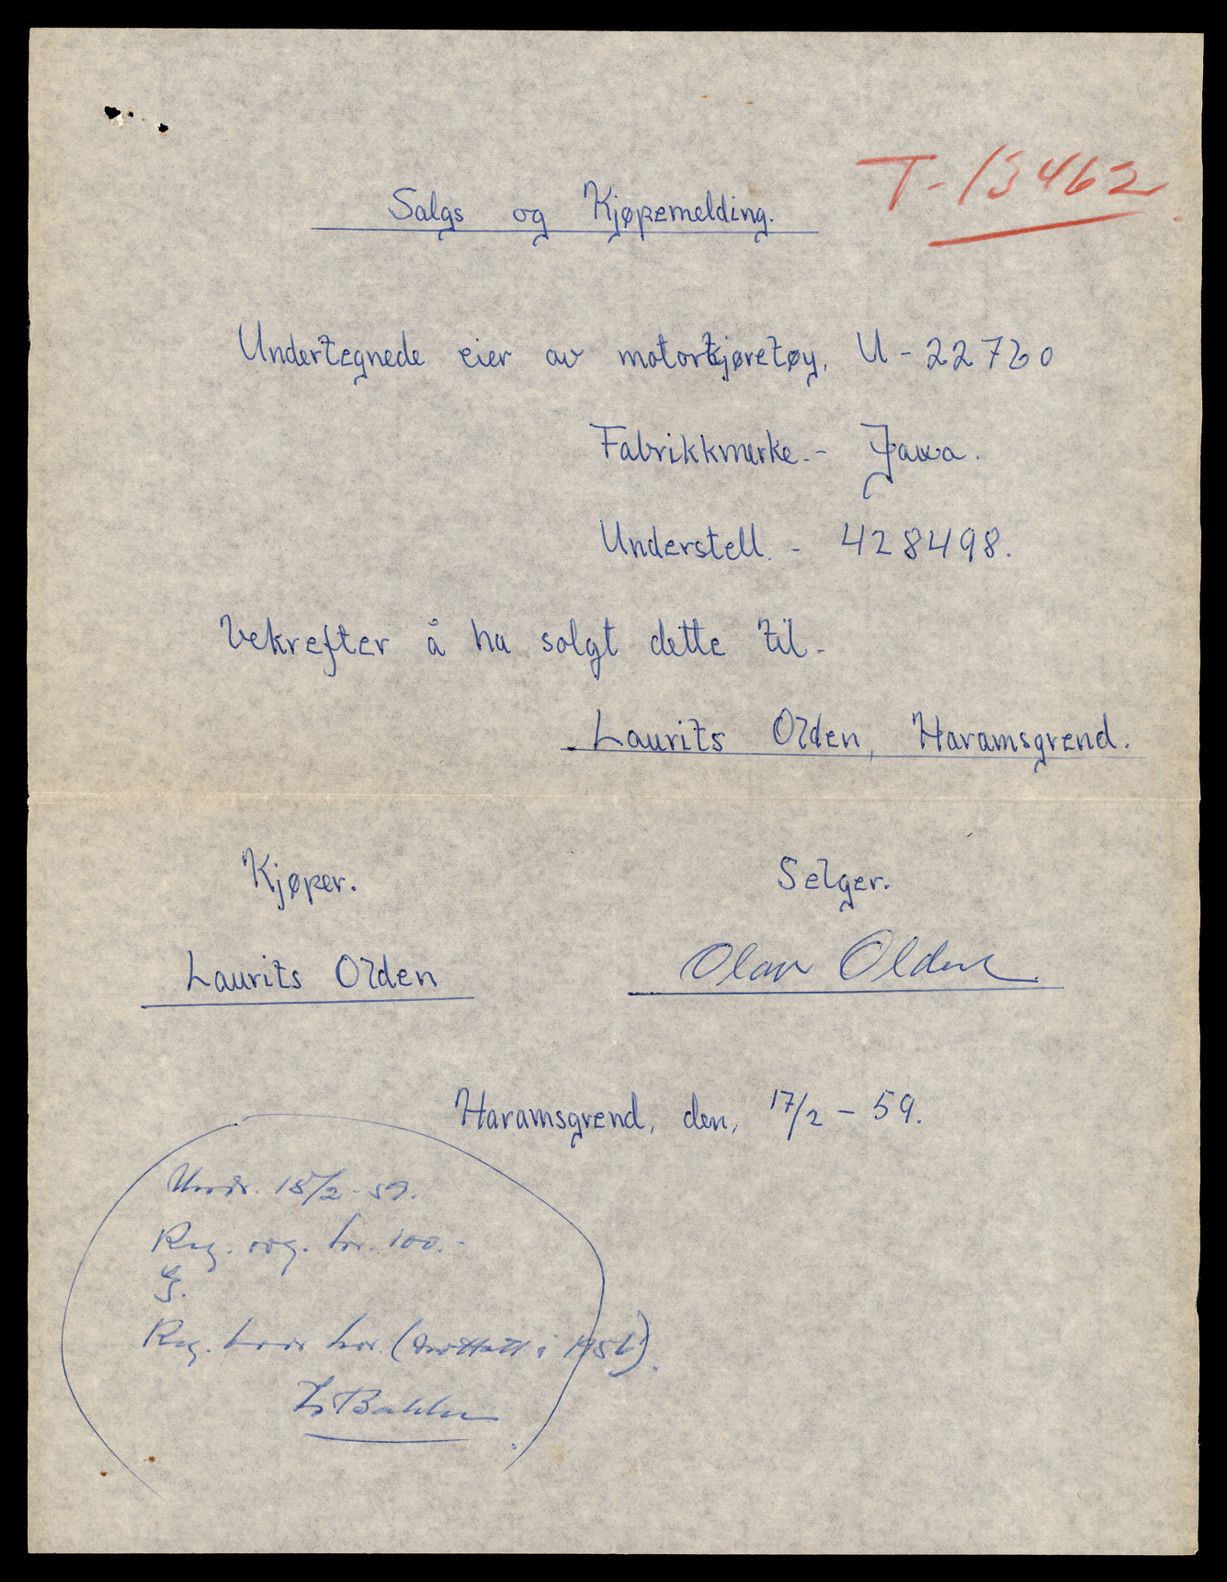 T-13462
Salgs og Kjøpemelding.
Undertegnede eier av motorkjøretøy, U-22760
Fabrikkmerke.- Jawa.
Understell. - 428498.
Bekrefter å ha solgt dette til-
Laurits Olden, Haramsgrend.
Kjøper. Selger.
Laurits Olden Olav Olden
Haramsgrend, den, 17/2 - 59.
18/2-59.
Reg. avg. kr. 100.-
G.
Reg. (innsatt i
Bakke